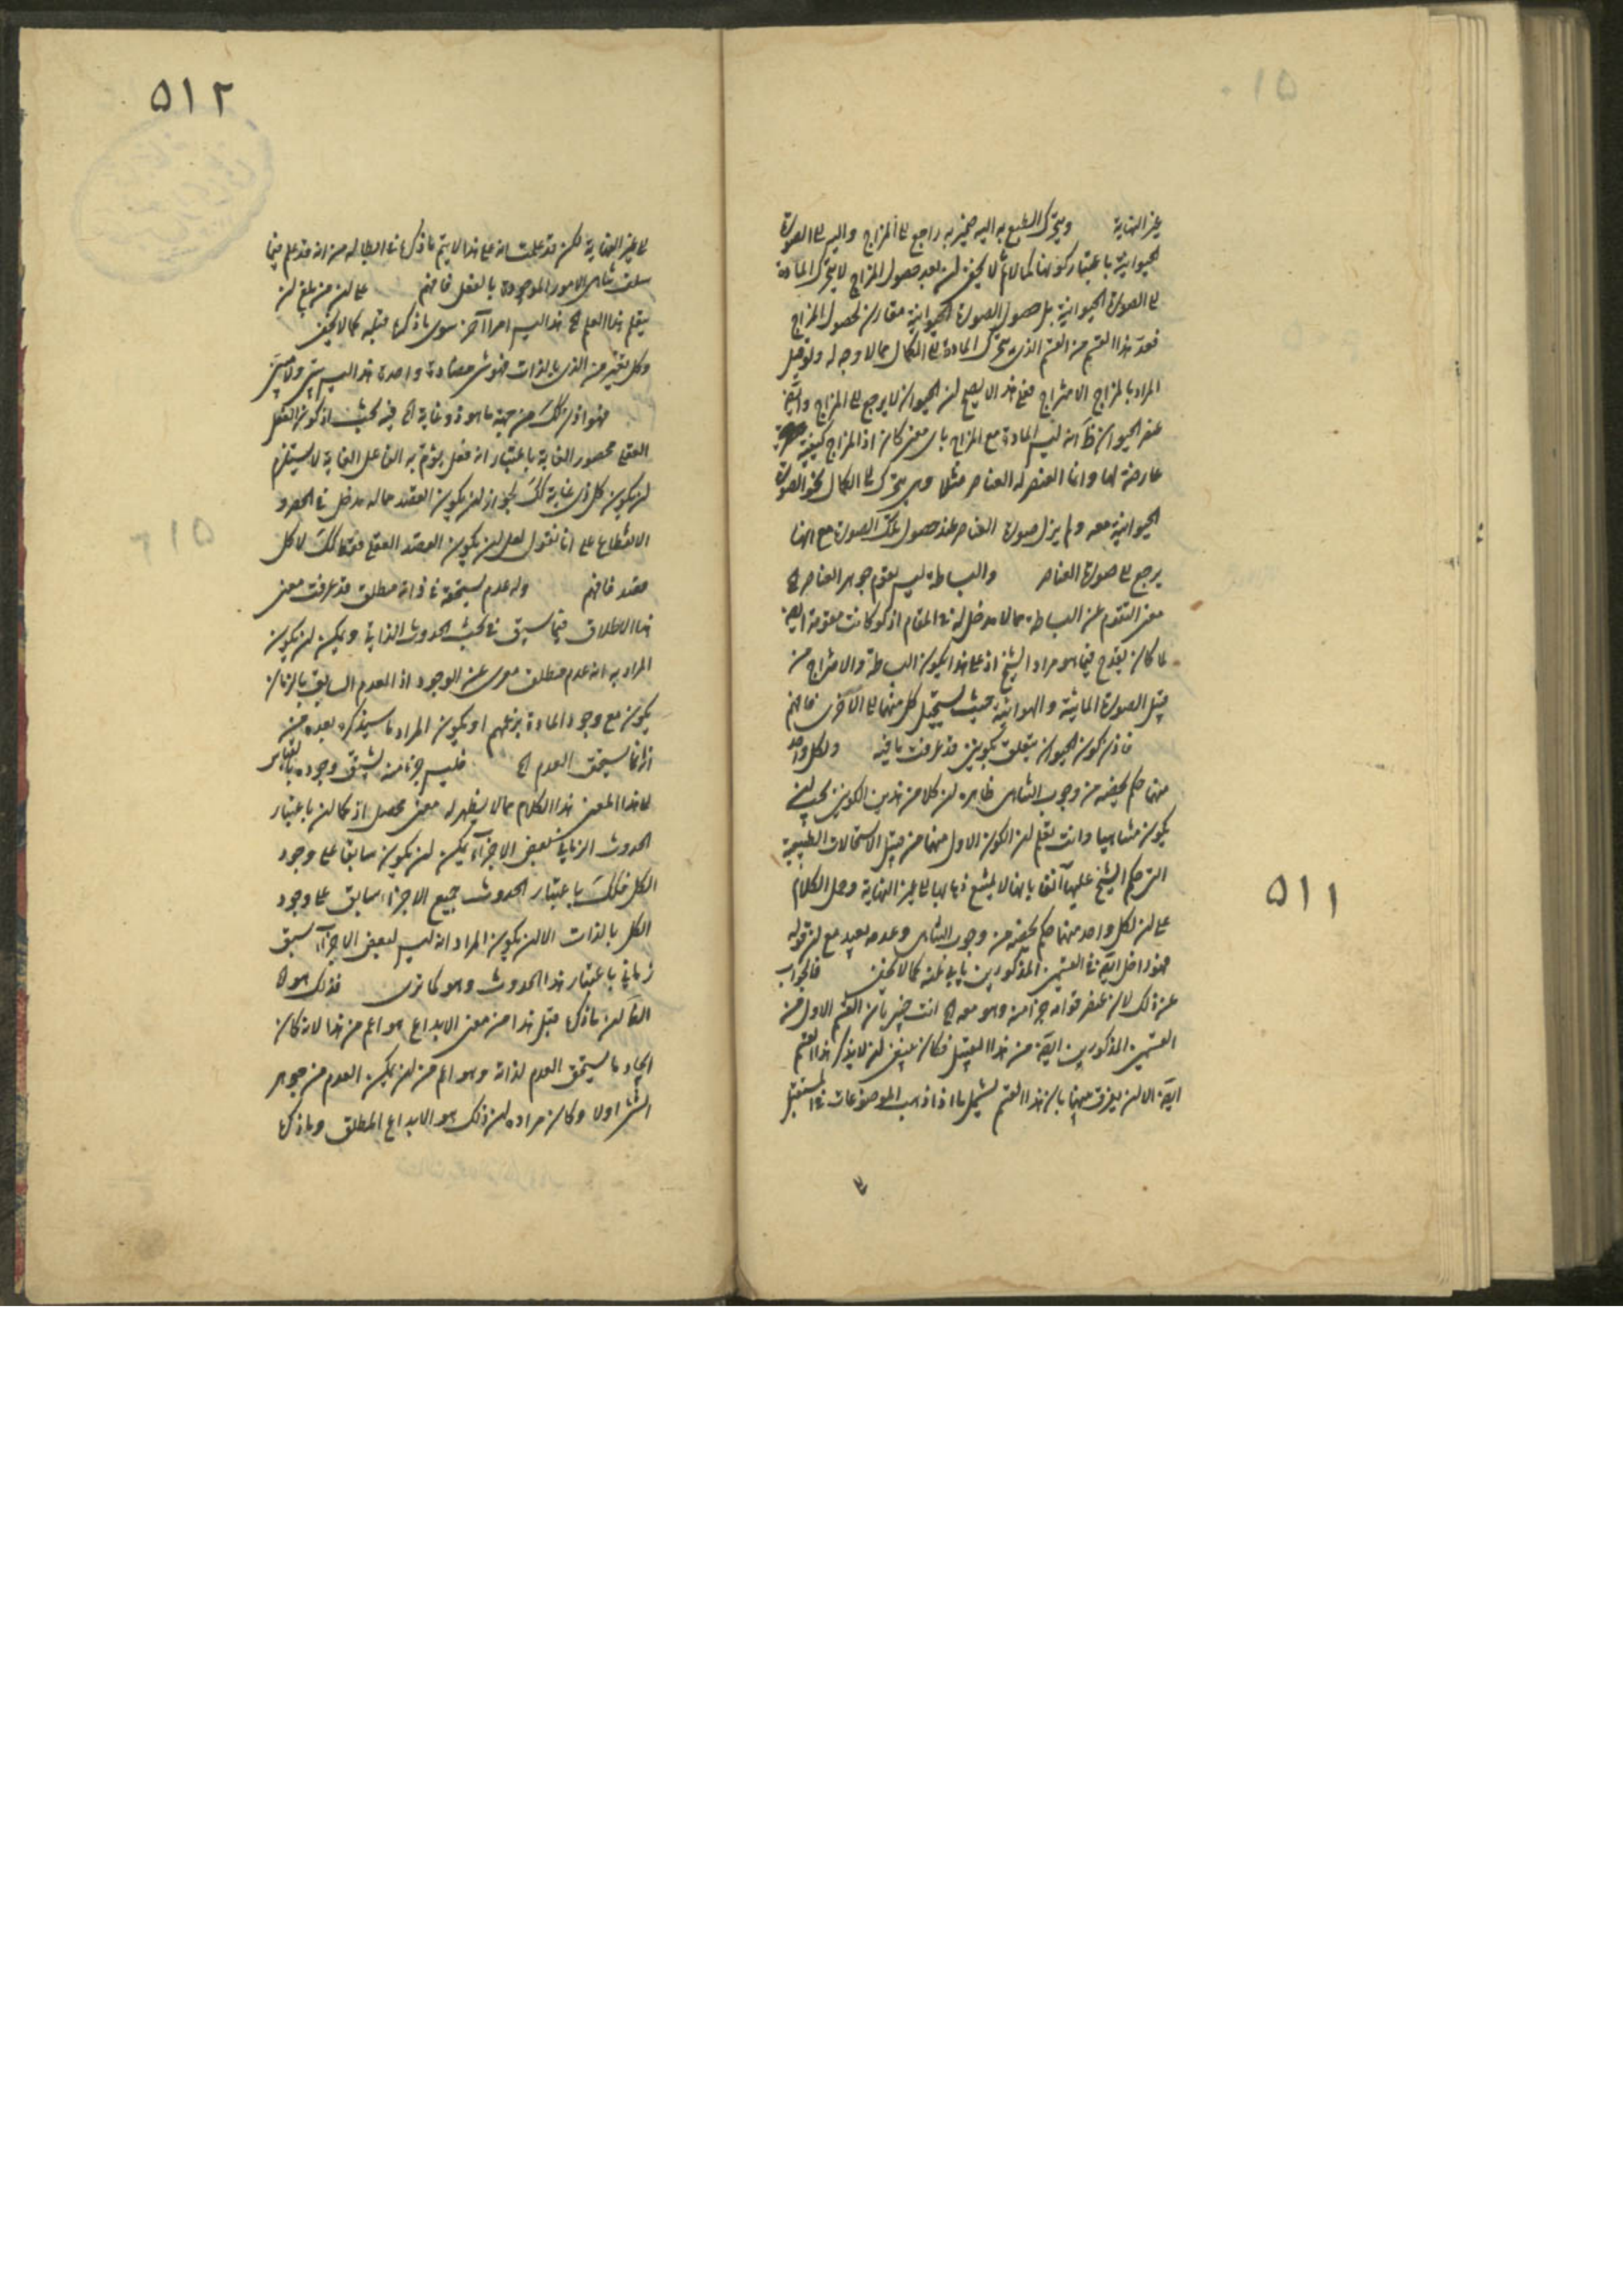 غير النهاية ويتحرك الطبع به اليه ضمير به راجع الى المزاج واليه الى الصورة
الحيوانية باعتبار كونها كمالا ثم لا يخفى ان بعد حصول المزاج لا يتحرك المادة
الى الصورة الحيوانية بل حصول الصورة الحيوانية مقارن لحصول المزاج
فعد هذا القسم من القسم الذي يتحرك المادة الى الكمال مما لا وجه له ولو قيل
المراد بالمزاج الامتزاج فمع هذا لا يصح ان الحيوان لا يرجع الى المزاج وايضا
عنصر الحيوان ليس المادة مع المزاج باي معنى كان اذ المزاج كيفية
عارضة لها وانما العنصر له العناصر مثلا وهي يتحرك الى الكمال نحو الصورة
الحيوانية معه ولم يزل صورة العناصر عند حصول تلك الصورة مع انها
يرجع الى صورة العناصر والبساطة ليس يقوم جوهر العناصر الخ
معنى التقدم عن البساطة مما لا مدخل له في المقام اذ لو كانت مقومة ايضا
لما كان يقدح فيما هو مراد الشيخ اذ على هذا يكون البساطة والامتزاج من
قبيل الصورة المائية والهوائية حيث يستحيل كل منهما الى الآخر فافهم
فاذن كون الحيوان يتعلق بكونين قد عرفت ما فيه ولكل واحد
منهما حكم يخصه من وجوب التناهي ظاهره ان كلا من هذين الكونين يجب ان
يكون متناهيا وانت تعلم ان الكون الاول منهما من قبيل الاستحالات الطبيعية
التي حكم الشيخ عليها آنفا بانها لا يمتنع ذهابها الى غير النهاية وحمل الكلام
على ان لكل واحد منهما حكم يخصه من وجوب التناهي وعدمه بعيد مع ان قوله
فهو داخل ايضا في القسمين المذكورين يابى عنه كما لا يخفى فالجواب
عن ذلك لان عنصر قوامه جزء منه وهو معه الخ انت خبير بان القسم الاول من
القسمين المذكورين ايضا من هذا القبيل فكان ينبغي ان لا يذكر هذا القسم
ايضا الا ان يفرق بينهما بان هذا القسم يشمل ما اذا ذهب الموضوعات في المستقبل
٥١١
٥١٢
الى غير النهاية لكن قد علمت انه على هذا لا يتم ما ذكره في ابطاله من انه قد علم فيما
سلف تناهي الامور الموجودة بالفعل فافهم على ان من بلغ ان
يتعلم هذا العلم الخ هذا ليس امرا آخر سوى ما ذكره قبله كما لا يخفى
وكل تغير من الذي بالذات فهو بين متضادة واحدة هذا ليس ببين ولا مبين
فهو اذن كذلك من جهة ما هو ذو غاية الخ فيه بحث اذ كون الفعل
العقلي محصور الغاية باعتبار انه فعل يؤم به الفاعل الغاية لا يستلزم
ان يكون كل ذي غاية كذلك لجواز ان يكون القصد مما له مدخل في الحصر و
الانقطاع على انا نقول لعل ان يكون القصد العقلي فقط كذلك لا كل
قصد فافهم وله عدم يستحقه في ذاته مطلق قد عرفت معنى
هذا الاطلاق فيما سبق في بحث الحدوث الذاتي ويمكن ان يكون
المراد به انه عدم مطلق معرى عن الوجود اذ العدم السابق بالزمان
يكون مع وجود المادة بزعمهم او يكون المراد ما سيذكره بعده من
انه انما يستحق العدم الخ فليس جزء منه يسبق وجوده بالقياس
الى هذا المعنى هذا الكلام مما لا يظهر له معنى محصل اذ كما ان باعتبار
الحدوث الزماني لبعض الاجزاء يمكن ان يكون سابقا على وجود
الكل فكذلك باعتبار الحدوث جميع الاجزاء سابق على وجود
الكل بالذات الا ان يكون المراد انه ليس لبعض الاجزاء سبق
زماني باعتبار هذا الحدوث وهو كما ترى فذلك هو الخ
الظاهر ان ما ذكره قبل هذا من معنى الابداع هو اعم من هذا لانه كان
ايجاد ما يستحق العدم لذاته وهو اعم من ان يمكن العدم من جوهر
الشيء اولا وكان مراده ان ذلك هو الابداع المطلق وما ذكره